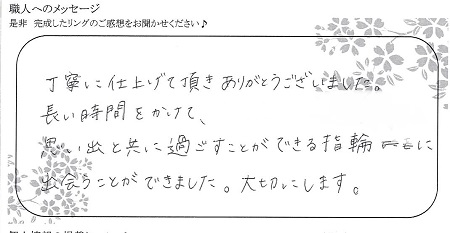 職人へのメッセージ
是非 完成したリングのご感想をお聞かせください♪
丁寧に仕上げて頂きありがとうございました。
長い時間をかけて、
思い出と共に過ごすことができる指輪に
出会うことができました。大切にします。